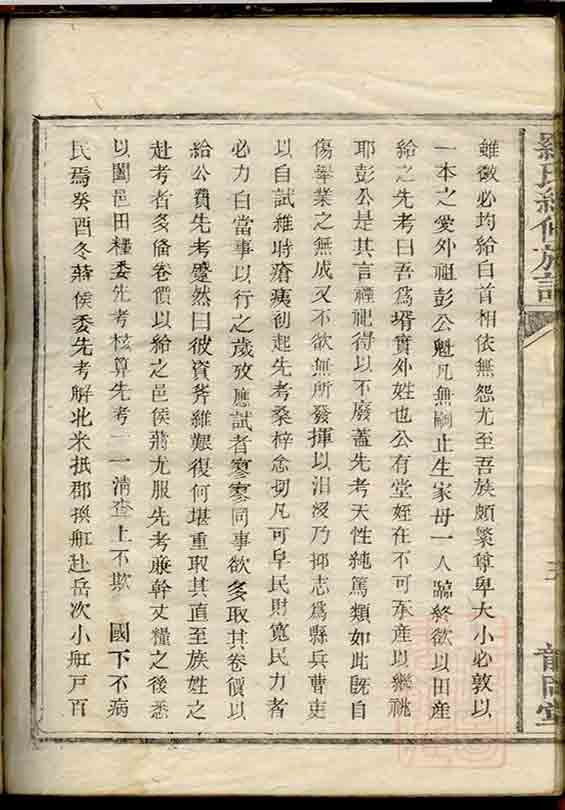 雖微必均給白首相依無怨尤至吾族頗繁尊卑大小必敦以
一本之愛外祖彭公魁凡無嗣止生家母一人臨終欲以田產
給之先考曰吾爲壻實外姓也公有堂姪在不可承產以繼祧
耶彭公是其言禋祀得以不廢蓋先考天性純篤類如此旣自
傷舉業之無成又不欲無所發揮以汨沒乃抑志爲縣兵曹吏
以自試維時瘡痍初起先考桑梓念切凡可阜民財寬民力者
必力白當事以行之歲攷應試者寥寥同事欲多取其卷價以
給公費先考蹙然曰彼資斧維艱復何堪重取其直至族姓之
赴考者多備卷價以給之邑侯蔣尤服先考廉幹丈糧之後悉
以闔邑田糧委先考核算先考一一清查上不欺 國下不病
民焉癸酉冬蔣侯委先考解北米抵郡換舡赴岳次小舡戶百